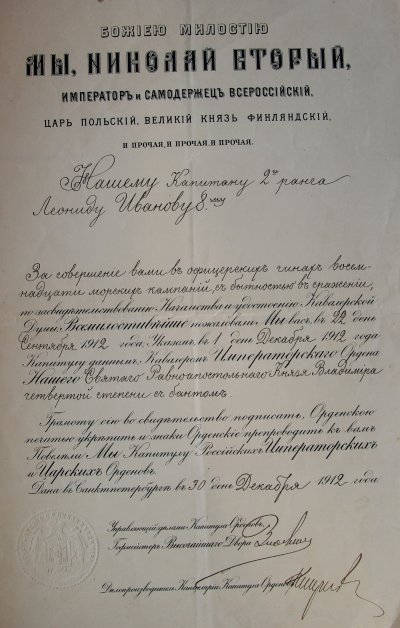 БОЖІЕЮ МИЛОСТІЮ
МЫ, НИКОЛАЙ ВТОРЫЙ,
ИМПЕРАТОРЪ и САМОДЕРЖЕЦЪ ВСЕРОССІЙСКІЙ,
ЦАРЬ ПОЛЬСКІЙ, ВЕЛИКІЙ КНЯЗЬ ФИНЛЯНДСКІЙ,
И ПРОЧАЯ, И ПРОЧАЯ, И ПРОЧАЯ.
Нашему Капитану 2го ранга
Леониду Иванову 8.му
За совершеніе вами въ офицерскихъ чинахъ восем-
надцати морскихъ кампаній, съ бытностью въ сраженіи,
по засвидѣтельствованію Начальства и удостоенію Кавалерской
Думы, Всемилостивѣйше пожаловали Мы васъ, въ 22 день
Сентября 1912 года, Указомъ, въ 1 день Декабря 1912 года
Капитулу даннымъ, Кавалеромъ Императорскаго Ордена
Нашего Святаго Равноапостольнаго Князя Владиміра
четвертой степени съ бантомъ.
Грамоту сію во свидѣтельство подписать, Орденскою
печатью укрѣпить и знаки Орденскіе препроводить къ вамъ
Повелѣли Мы Капитулу Россійскихъ Императорскихъ
и Царскихъ Орденовъ.
Дана въ Санктпетербургѣ въ 30 день Декабря 1912 года.
Управляющій дѣлами Капитула Орденовъ,
Гофмейстеръ Высочайшаго Двора
Дѣлопроизводитель Канцеляріи Капитула Орденовъ